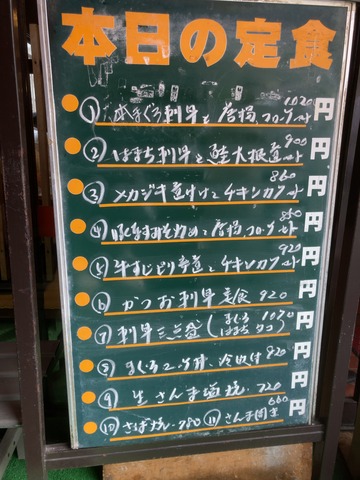 本日の定食
① 本まぐろ刺身と唐揚コロッケ 1020円
② はまち刺身と鮭大根煮 900円
③ メカジキ煮付けとチキンカツ 860円
④ 豚なす炒めと唐揚コロッケ 850円
⑤ 牛すじどて煮とチキンカツ 920円
⑥ かつお刺身定食 920円
⑦ 刺身三点盛(まぐろ はまち タコ) 1070円
⑧ まぐろ二色丼、冷奴付 920円
⑨ 生さんま塩焼、720円
⑩ さば焼、780 ⑪ さんま開き 660円